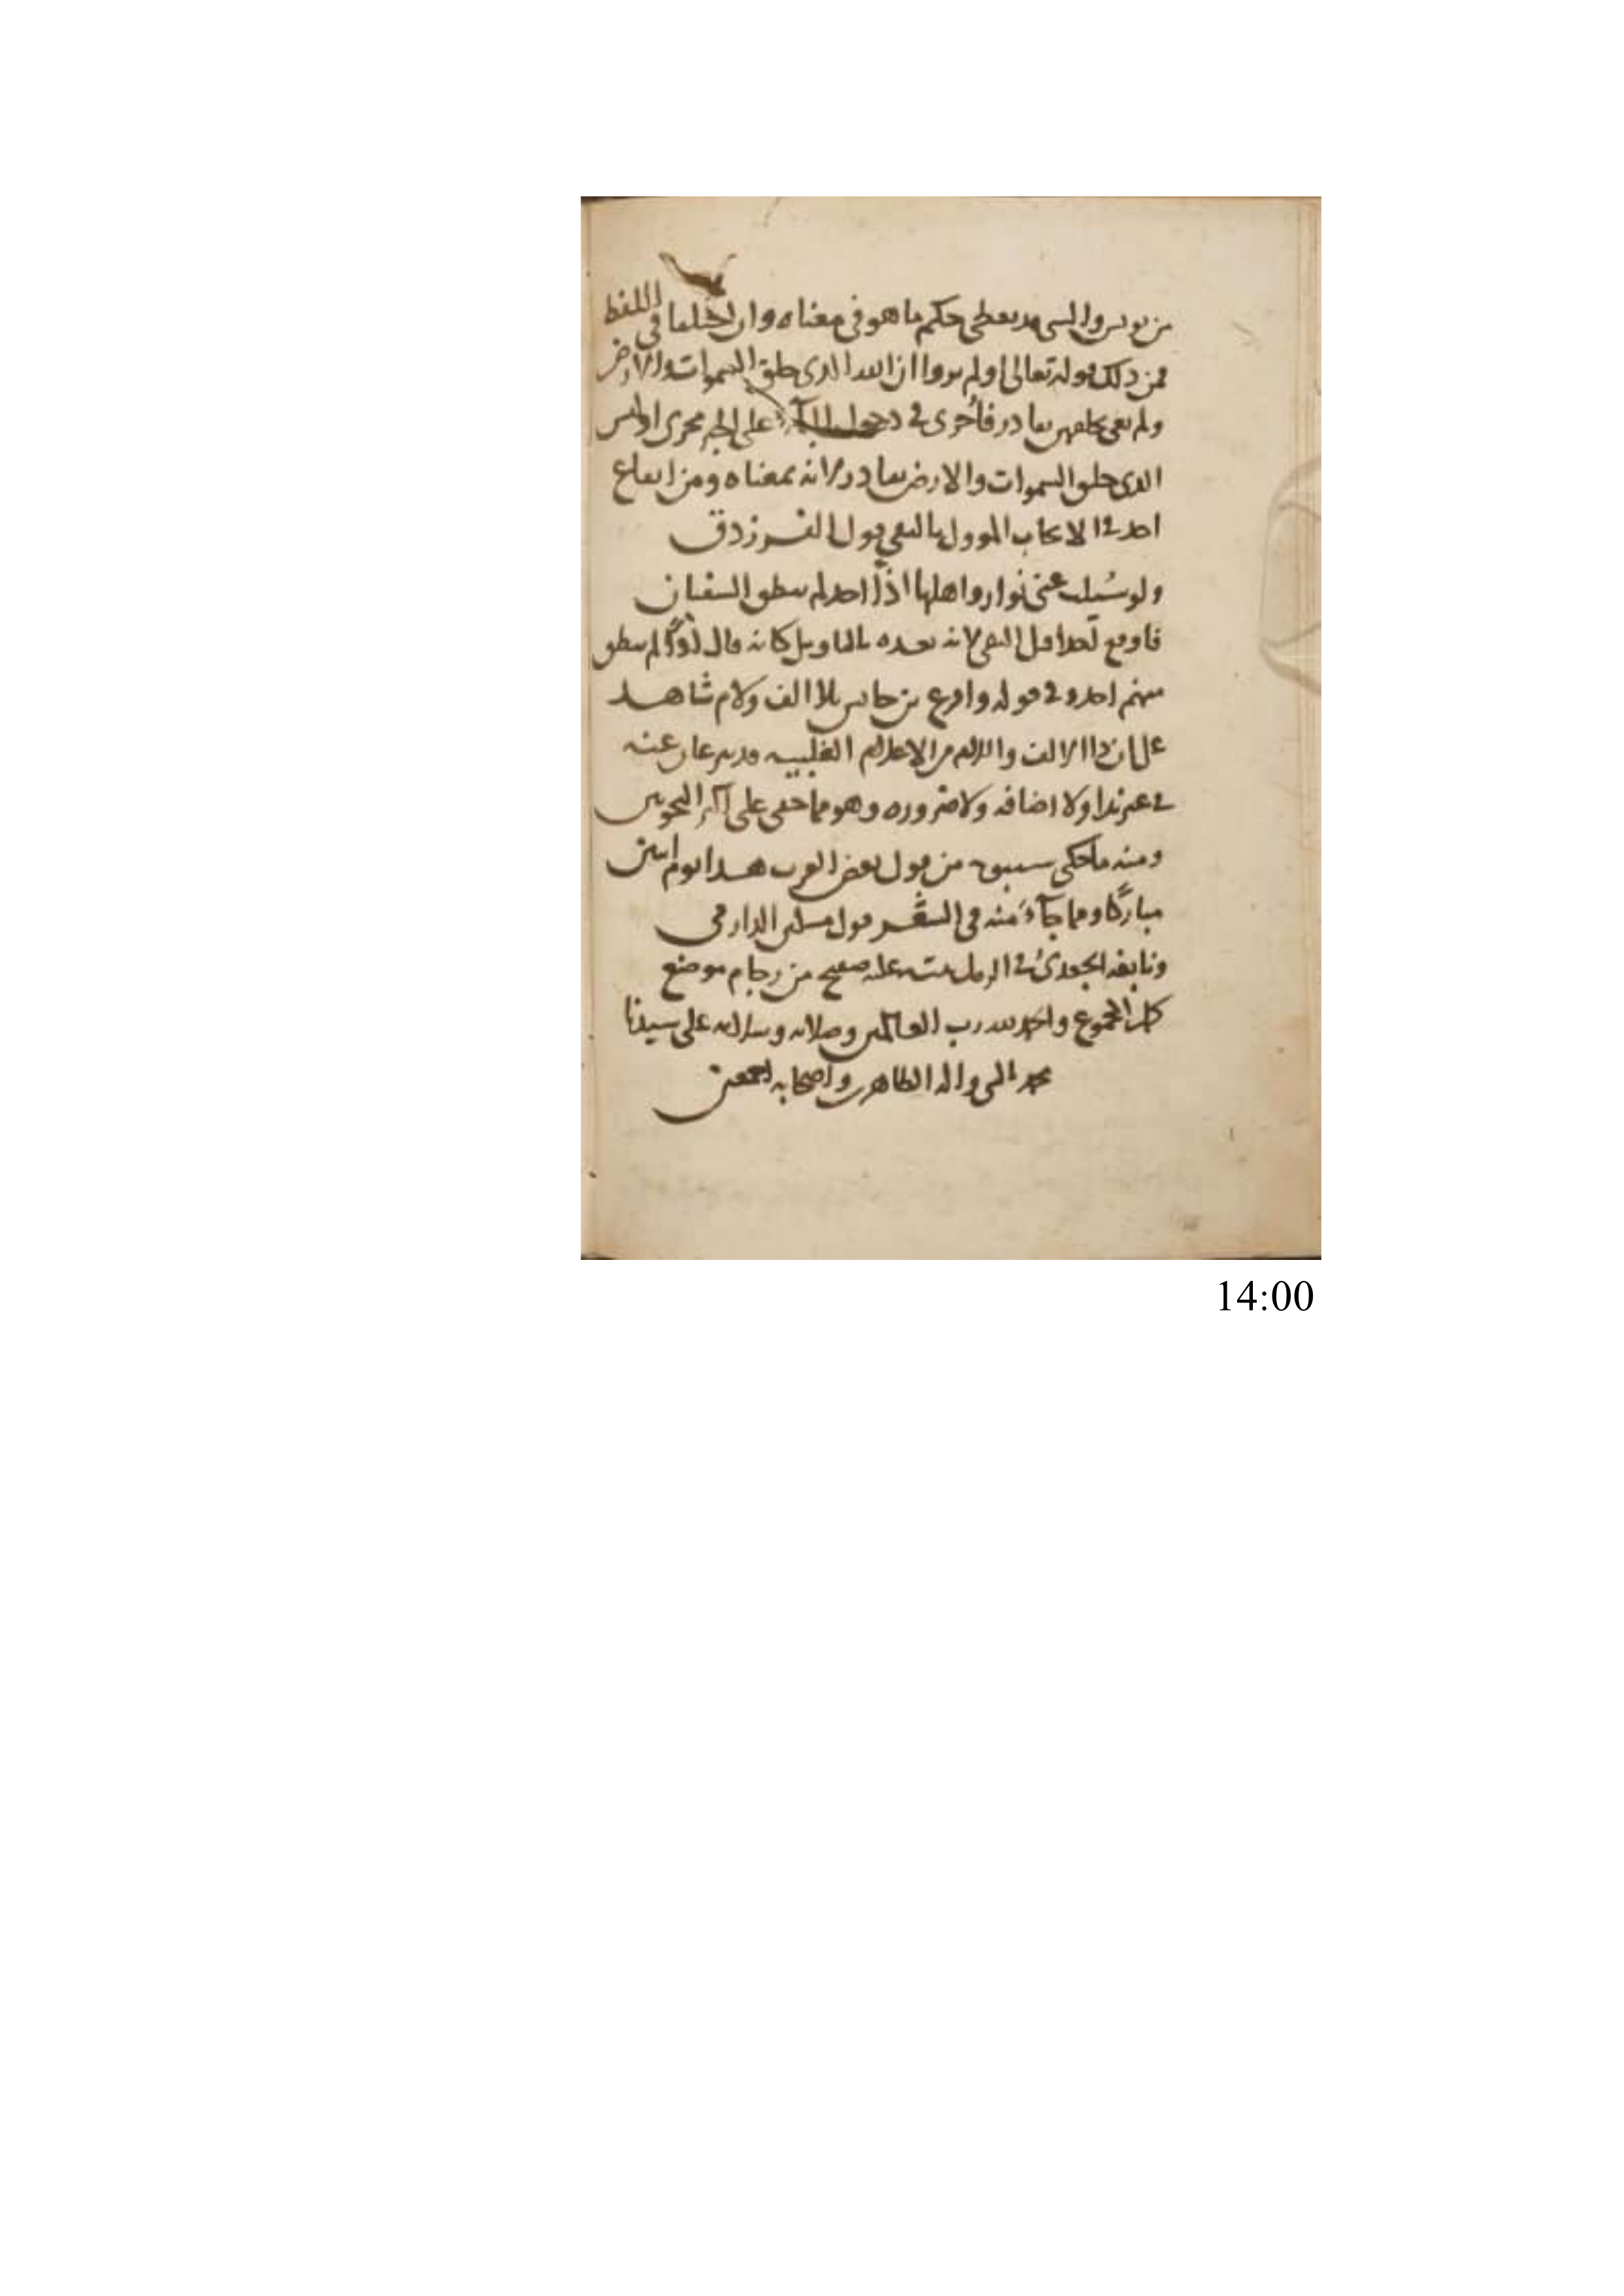 من يونس والشي قد يعطى حكم ما هو في معناه وان اختلفا في اللفظ
فمن ذلك قوله تعالى اولم يروا ان الله الذي خلق السموات والارض
ولم يعي بخلقهن بقادر فأجرى في دخول الباء على الخبر مجرى اوليس
الذي خلق السموات والارض بقادر لانه بمعناه ومن ايقاع
احد في الايجاب المووّل بالنفي قول الفرزدق
ولو سُيلت عني نوار واهلها اذًا احد لم ينطق الشفتان
فاوقع احدا قبل النفي لانه بعده بالتاويل كانه قال اذًا لم ينطق
منهم احد وفي قوله واقرع بن حابس بلا الف ولام شاهد
على ان ذا الالف واللام من الاعلام الغلبيه قد ينزعان عنه
في غير ندا ولا اضافه ولا ضروره وهو مما خفي على اكثر النحويين
ومنه ما حكى سيبويه من قول بعض العرب هذا يوم اثنين
مباركًا ومما جآء منه في الشعر قول مسكين الدارمي
ونابغه الجعديُ في الرمل بيته عليه صفيح من رخام موضع
كمل المجموع والحمد لله رب العالمين وصلاته وسلامه على سيدنا
محمد النبي واله الطاهرين واصحابه اجمعين
14:00